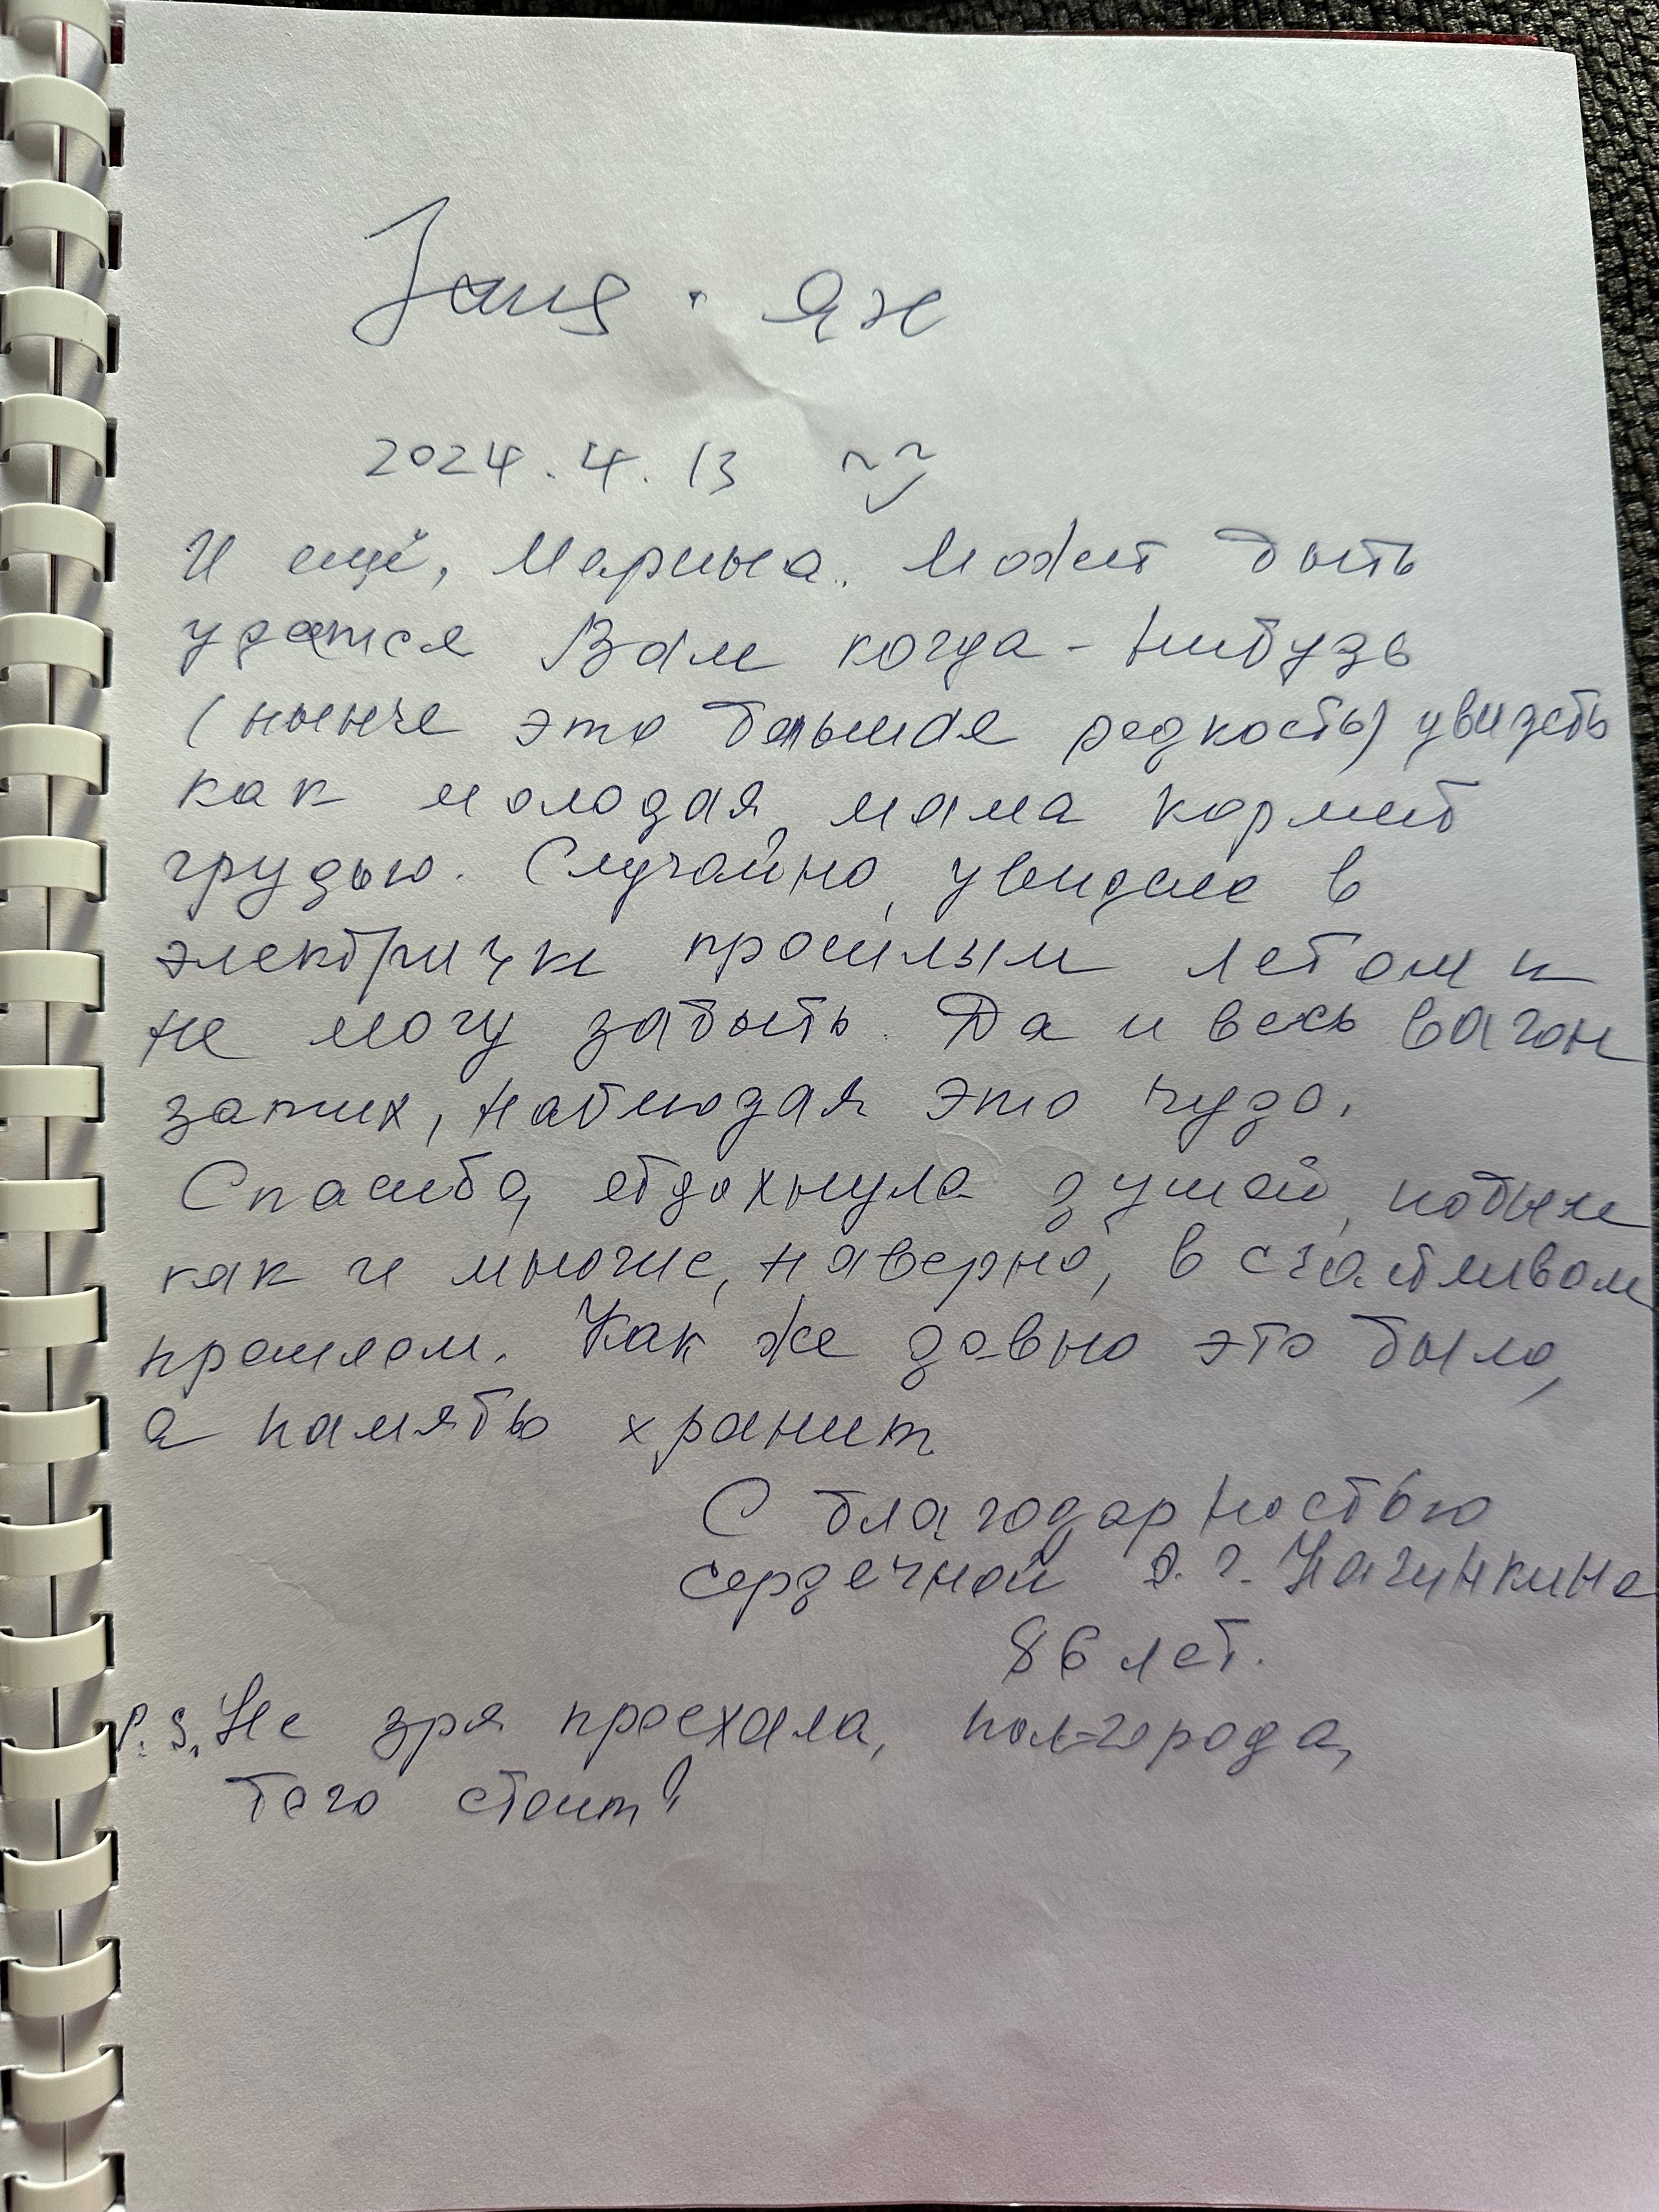 Ян
2024.4.13
И ещё, Марина. Может быть
удастся Вам когда-нибудь
(нынче это большая редкость) увидеть
как молодая мама кормит
грудью. Случайно, увидела в
электричке прошлым летом и
не могу забыть. Да и весь вагон
затих, наблюдая это чудо.
Спасибо, отдохнула душой, побыла
как и многие, наверно, в счастливом
прошлом. Как же давно это было,
а память хранит
С благодарностью
сердечной
86 лет.
P.S. Не зря проехала, пол-города,
того стоит!